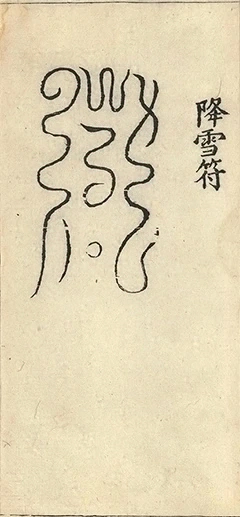 降雪符